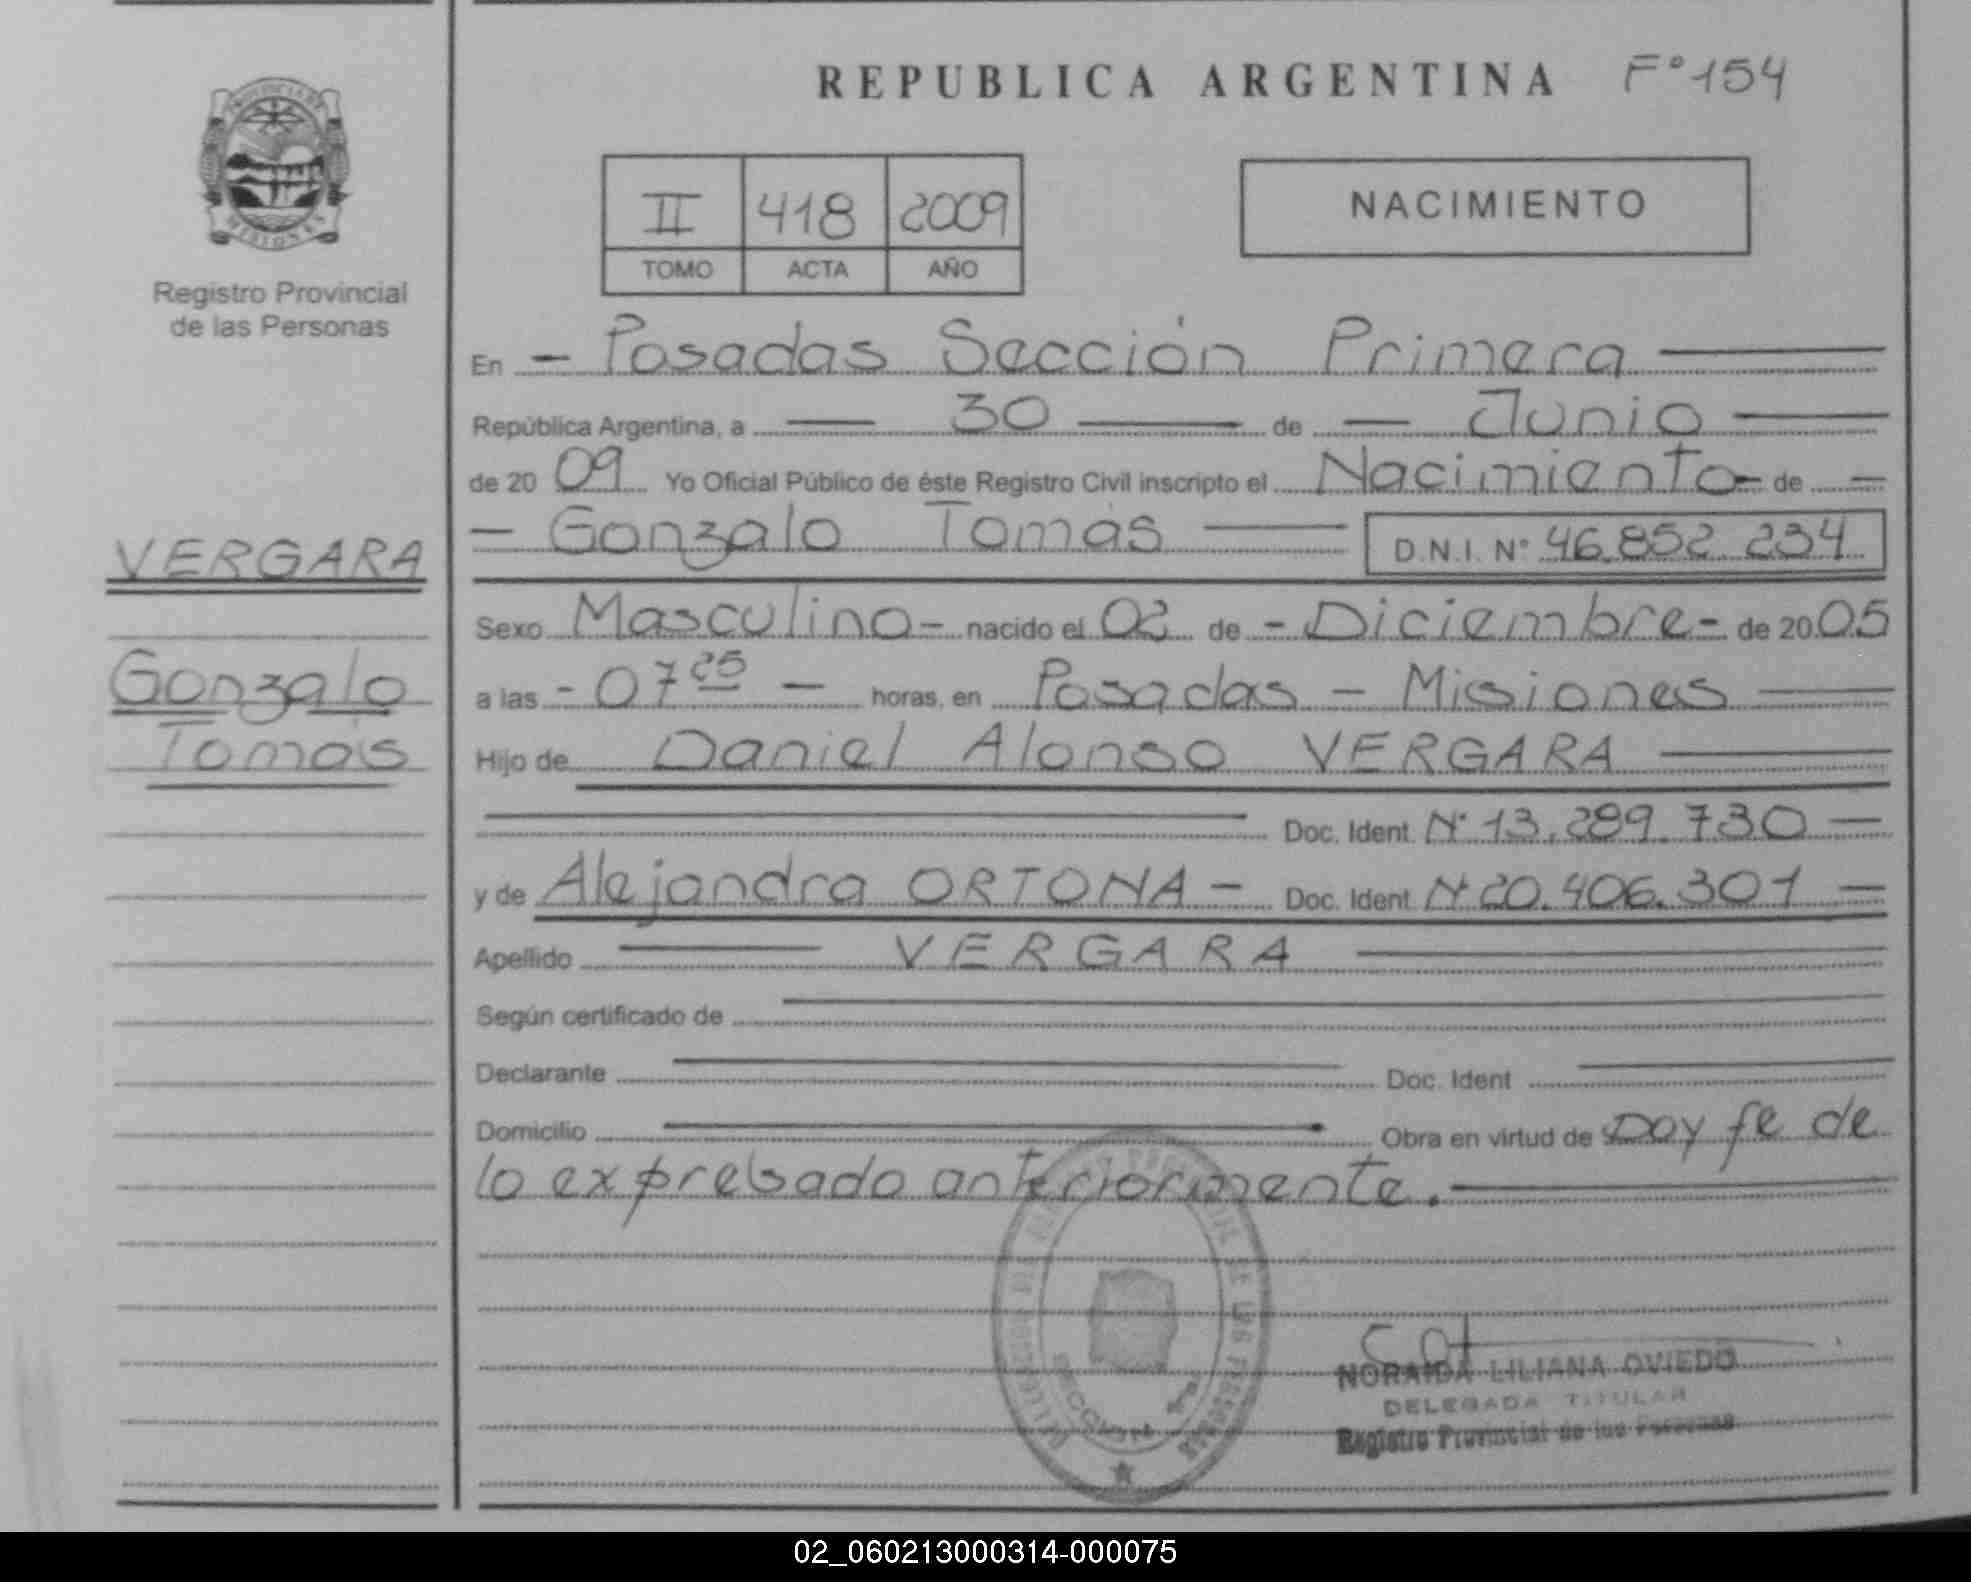 REPUBLICA ARGENTINA F° 154
PROVINCIA DE
MISIONES
Registro Provincial
de las Personas
II 418 2009
TOMO ACTA AÑO
NACIMIENTO
En - Posadas Sección Primera
República Argentina, a 30 de Junio
de 20 09 Yo Oficial Público de éste Registro Civil inscripto el Nacimiento - de -
- Gonzalo Tomás D.N.I. N° 46.852.234
VERGARA
Gonzalo
Tomás
Sexo Masculino - nacido el 02 de - Diciembre - de 2005
a las - 07 25 - horas, en Posadas - Misiones
Hijo de Daniel Alonso VERGARA
Doc. Ident. N° 13.289.730 -
y de Alejandra ORTONA - Doc. Ident. N° 20.406.301 -
Apellido VERGARA
Según certificado de
Declarante Doc. Ident
Domicilio Obra en virtud de Doy fe de
lo expresado anteriormente.
NORAIDA LILIANA OVIEDO
DELEGADA TITULAR
Registro Provincial de las Personas
02_060213000314-000075